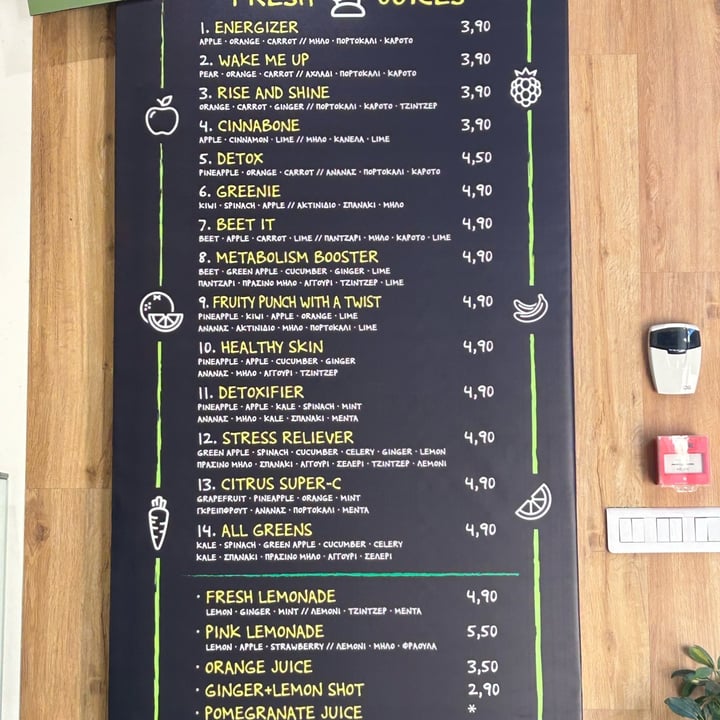 FRESH JUICES
1. ENERGIZER 3,90
APPLE · ORANGE · CARROT // ΜΗΛΟ · ΠΟΡΤΟΚΑΛΙ · ΚΑΡΟΤΟ
2. WAKE ME UP 3,90
PEAR · ORANGE · CARROT // ΑΧΛΑΔΙ · ΠΟΡΤΟΚΑΛΙ · ΚΑΡΟΤΟ
3. RISE AND SHINE 3,90
ORANGE · CARROT · GINGER // ΠΟΡΤΟΚΑΛΙ · ΚΑΡΟΤΟ · ΤΖΙΝΤΖΕΡ
4. CINNABONE 3,90
APPLE · CINNAMON · LIME // ΜΗΛΟ · ΚΑΝΕΛΑ · LIME
5. DETOX 4,50
PINEAPPLE · ORANGE · CARROT // ΑΝΑΝΑΣ · ΠΟΡΤΟΚΑΛΙ · ΚΑΡΟΤΟ
6. GREENIE 4,90
KIWI · SPINACH · APPLE // ΑΚΤΙΝΙΔΙΟ · ΣΠΑΝΑΚΙ · ΜΗΛΟ
7. BEET IT 4,90
BEET · APPLE · CARROT · LIME // ΠΑΝΤΖΑΡΙ · ΜΗΛΟ · ΚΑΡΟΤΟ · LIME
8. METABOLISM BOOSTER 4,90
BEET · GREEN APPLE · CUCUMBER · GINGER · LIME
ΠΑΝΤΖΑΡΙ · ΠΡΑΣΙΝΟ ΜΗΛΟ · ΑΓΓΟΥΡΙ · ΤΖΙΝΤΖΕΡ · LIME
9. FRUITY PUNCH WITH A TWIST 4,90
PINEAPPLE · KIWI · APPLE · ORANGE · LIME
ΑΝΑΝΑΣ · ΑΚΤΙΝΙΔΙΟ · ΜΗΛΟ · ΠΟΡΤΟΚΑΛΙ · LIME
10. HEALTHY SKIN 4,90
PINEAPPLE · APPLE · CUCUMBER · GINGER
ΑΝΑΝΑΣ · ΜΗΛΟ · ΑΓΓΟΥΡΙ · ΤΖΙΝΤΖΕΡ
11. DETOXIFIER 4,90
PINEAPPLE · APPLE · KALE · SPINACH · MINT
ΑΝΑΝΑΣ · ΜΗΛΟ · KALE · ΣΠΑΝΑΚΙ · ΜΕΝΤΑ
12. STRESS RELIEVER 4,90
GREEN APPLE · SPINACH · CUCUMBER · CELERY · GINGER · LEMON
ΠΡΑΣΙΝΟ ΜΗΛΟ · ΣΠΑΝΑΚΙ · ΑΓΓΟΥΡΙ · ΣΕΛΕΡΙ · ΤΖΙΝΤΖΕΡ · ΛΕΜΟΝΙ
13. CITRUS SUPER-C 4,90
GRAPEFRUIT · PINEAPPLE · ORANGE · MINT
ΓΚΡΕΙΠΦΡΟΥΤ · ΑΝΑΝΑΣ · ΠΟΡΤΟΚΑΛΙ · ΜΕΝΤΑ
14. ALL GREENS 4,90
KALE · SPINACH · GREEN APPLE · CUCUMBER · CELERY
KALE · ΣΠΑΝΑΚΙ · ΠΡΑΣΙΝΟ ΜΗΛΟ · ΑΓΓΟΥΡΙ · ΣΕΛΕΡΙ
· FRESH LEMONADE 4,90
LEMON · GINGER · MINT // ΛΕΜΟΝΙ · ΤΖΙΝΤΖΕΡ · ΜΕΝΤΑ
· PINK LEMONADE 5,50
LEMON · APPLE · STRAWBERRY // ΛΕΜΟΝΙ · ΜΗΛΟ · ΦΡΑΟΥΛΑ
· ORANGE JUICE 3,50
· GINGER+LEMON SHOT 2,90
· POMEGRANATE JUICE *